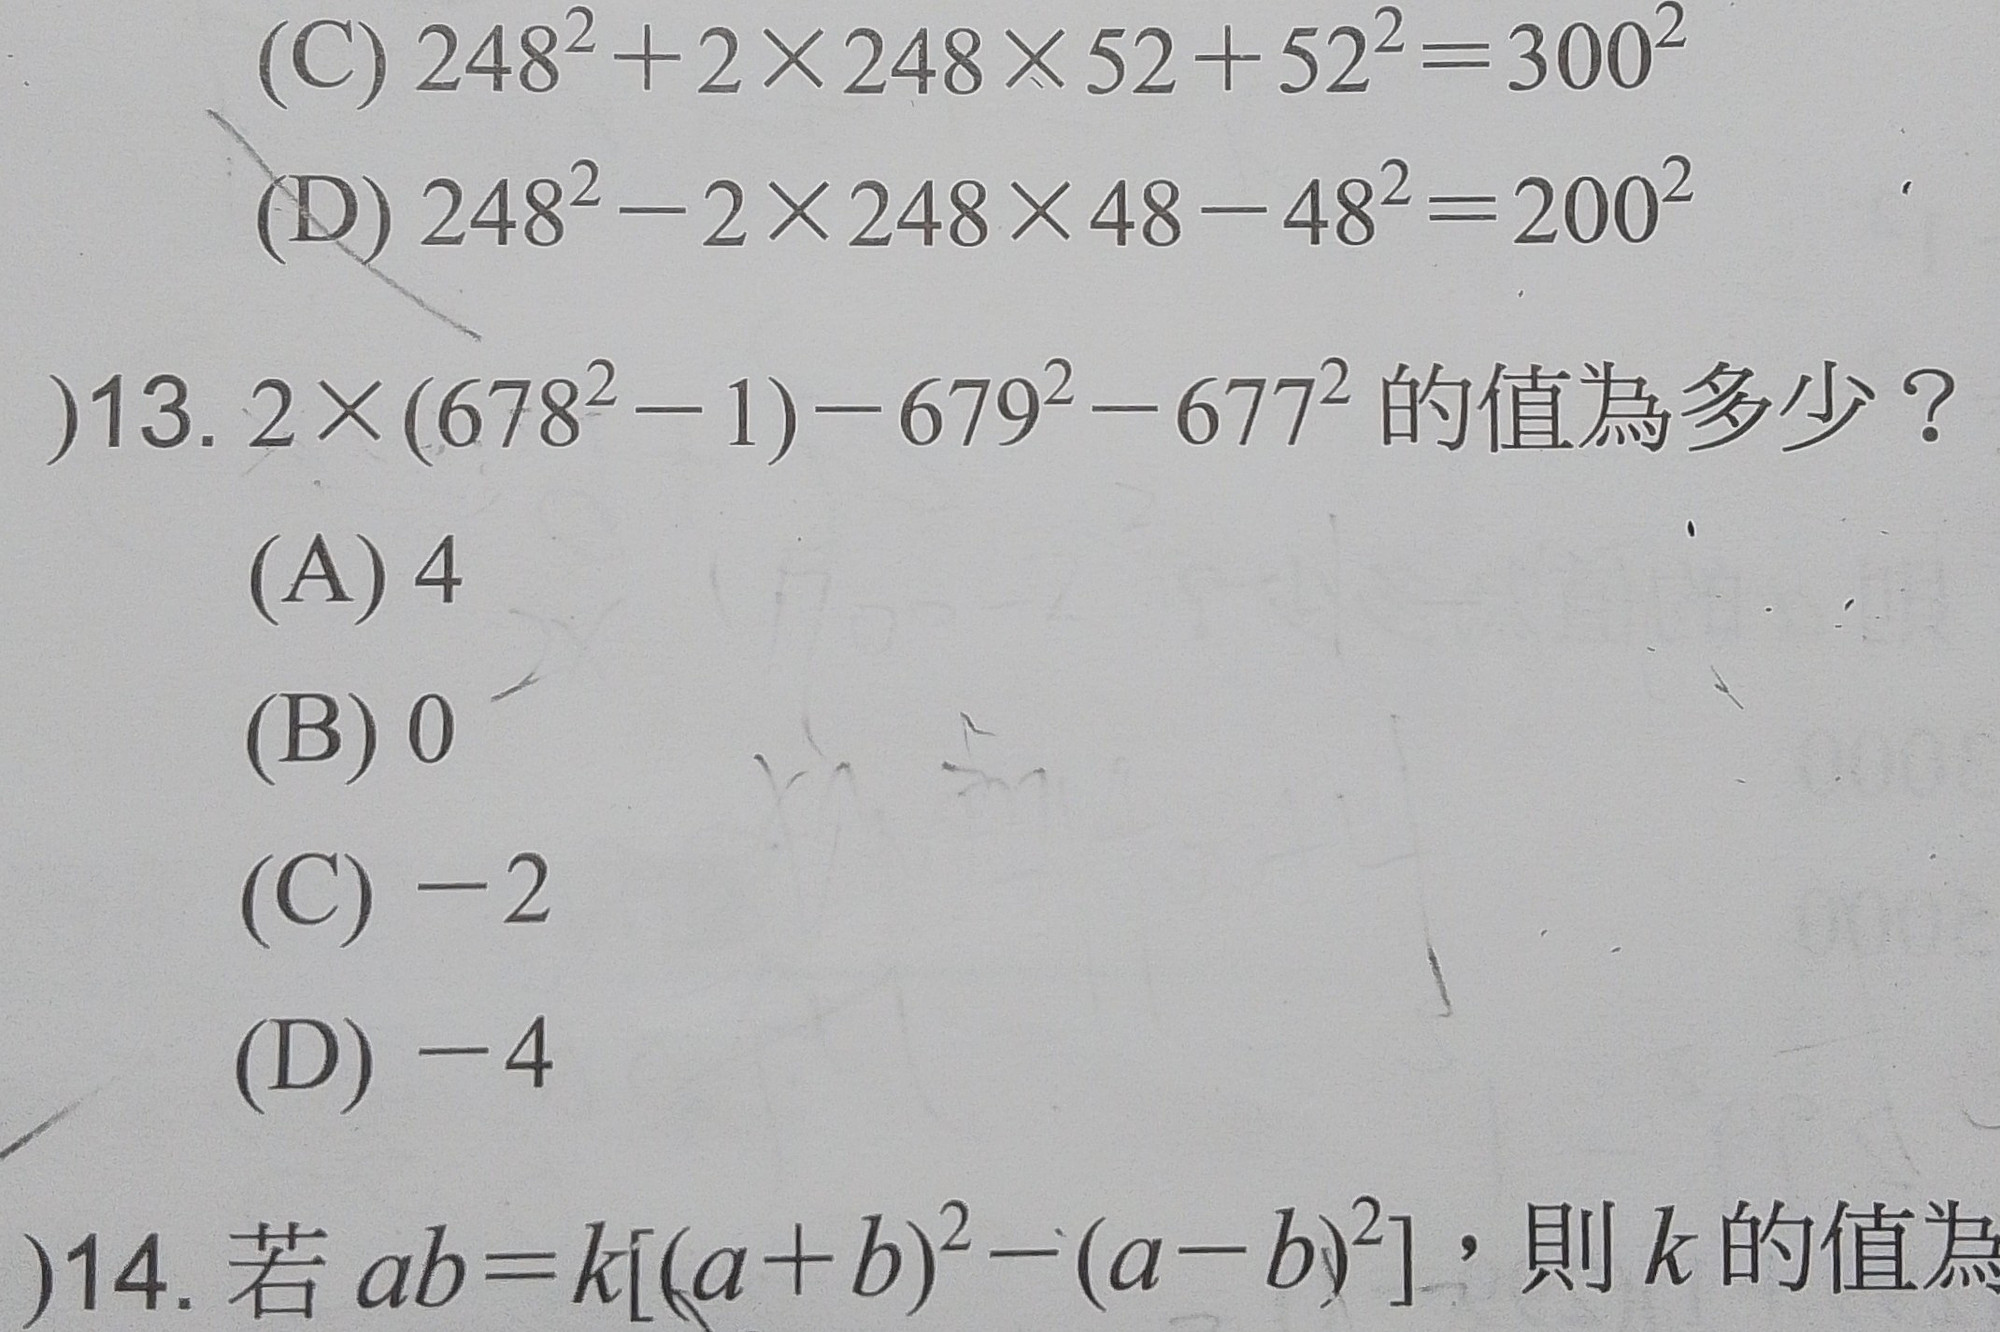 (C) 248²＋2×248×52＋52²＝300²
(D) 248²－2×248×48－48²＝200²
)13. 2×(678²－1)－679²－677² 的值為多少？
(A) 4
(B) 0
(C) －2
(D) －4
)14. 若 ab＝k[(a＋b)²－(a－b)²]，則 k 的值為